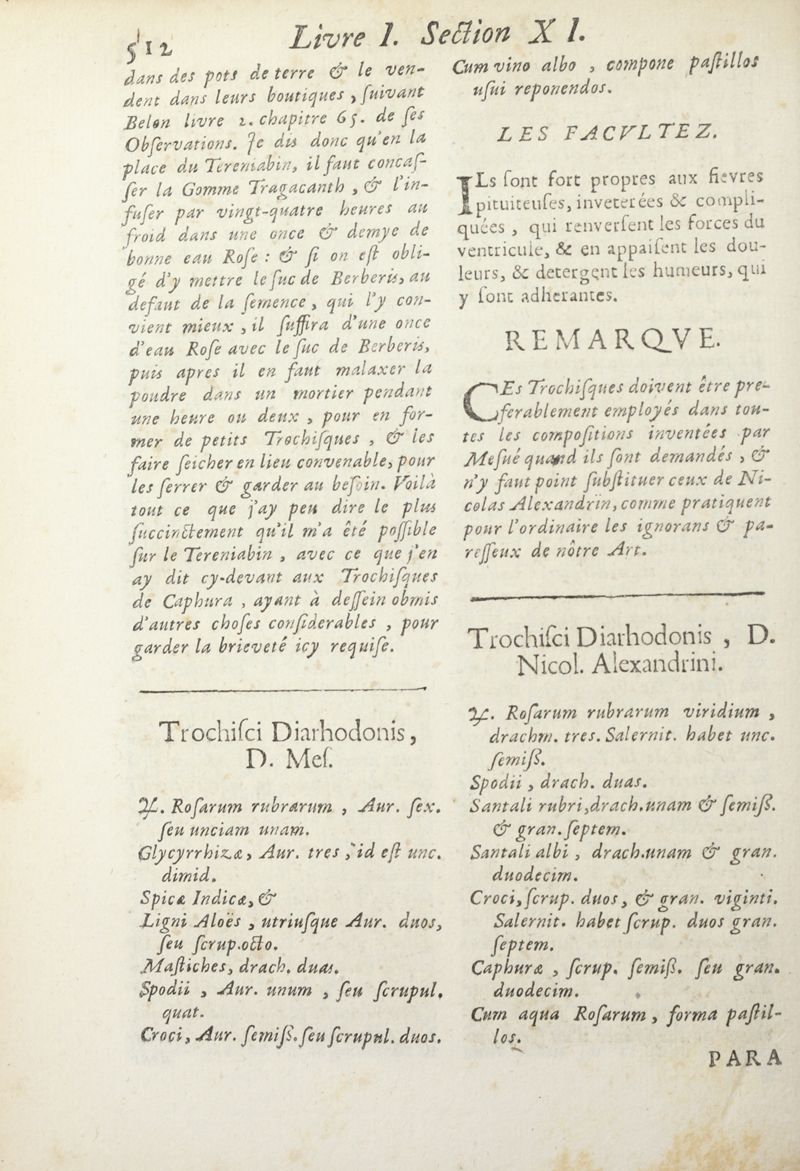 512
Livre I. Section XI.
dans des pots de terre & le ven-
dent dans leurs boutiques, ſuivant
Belon livre 2. chapitre 65. de ſes
Obſervations. Je dis donc qu'en la
place du Tereniabin, il faut concaſ-
ſer la Gomme Tragacanth, & l'in-
fuſer par vingt-quatre heures au
froid dans une once & demye de
bonne eau Roſe : & ſi on eſt obli-
gé d'y mettre le ſuc de Berberis, au
defaut de la ſemence, qui l'y con-
vient mieux, il ſuffira d'une once
d'eau Roſe avec le ſuc de Berberis,
puis apres il en faut malaxer la
poudre dans un mortier pendant
une heure ou deux, pour en for-
mer de petits Trochiſques, & les
faire ſeicher en lieu convenable, pour
les ſerrer & garder au beſoin. Voilà
tout ce que j'ay peu dire le plus
ſuccinctement qu'il m'a êté poſſible
ſur le Tereniabin, avec ce que j'en
ay dit cy-devant aux Trochiſques
de Caphura, ayant à deſſein obmis
d'autres choſes conſiderables, pour
garder la brieveté icy requiſe.
Trochiſci Diarhodonis,
D. Meſ.
℞. Roſarum rubrarum, Aur. ſex.
ſeu unciam unam.
Glycyrrhizæ, Aur. tres, id eſt unc.
dimid.
Spicæ Indicæ, &
Ligni Aloës, utriuſque Aur. duos,
ſeu ſcrup.octo.
Maſtiches, drach. duas.
Spodii, Aur. unum, ſeu ſcrupul.
quat.
Croci, Aur. ſemiß. ſeu ſcrupul. duos.
Cum vino albo, compone paſtillos
uſui reponendos.
LES FACVLTEZ.
ILs ſont fort propres aux fievres
pituiteuſes, inveterées & compli-
quées, qui renverſent les forces du
ventricule, & en appaiſent les dou-
leurs, & detergent les humeurs, qui
y ſont adherantes.
REMARQVE.
CEs Trochiſques doivent être pre-
ferablement employés dans tou-
tes les compoſitions inventées par
Meſué quand ils ſont demandés, &
n'y faut point ſubſtituer ceux de Ni-
colas Alexandrin, comme pratiquent
pour l'ordinaire les ignorans & pa-
reſſeux de nôtre Art.
Trochiſci Diarhodonis, D.
Nicol. Alexandrini.
℞. Roſarum rubrarum viridium,
drachm. tres. Salernit. habet unc.
ſemiß.
Spodii, drach. duas.
Santali rubri, drach.unam & ſemiß.
& gran. ſeptem.
Santali albi, drach.unam & gran.
duodecim.
Croci, ſcrup. duos, & gran. viginti.
Salernit. habet ſcrup. duos gran.
ſeptem.
Caphuræ, ſcrup. ſemiß. ſeu gran.
duodecim.
Cum aqua Roſarum, forma paſtil-
los.
PARA